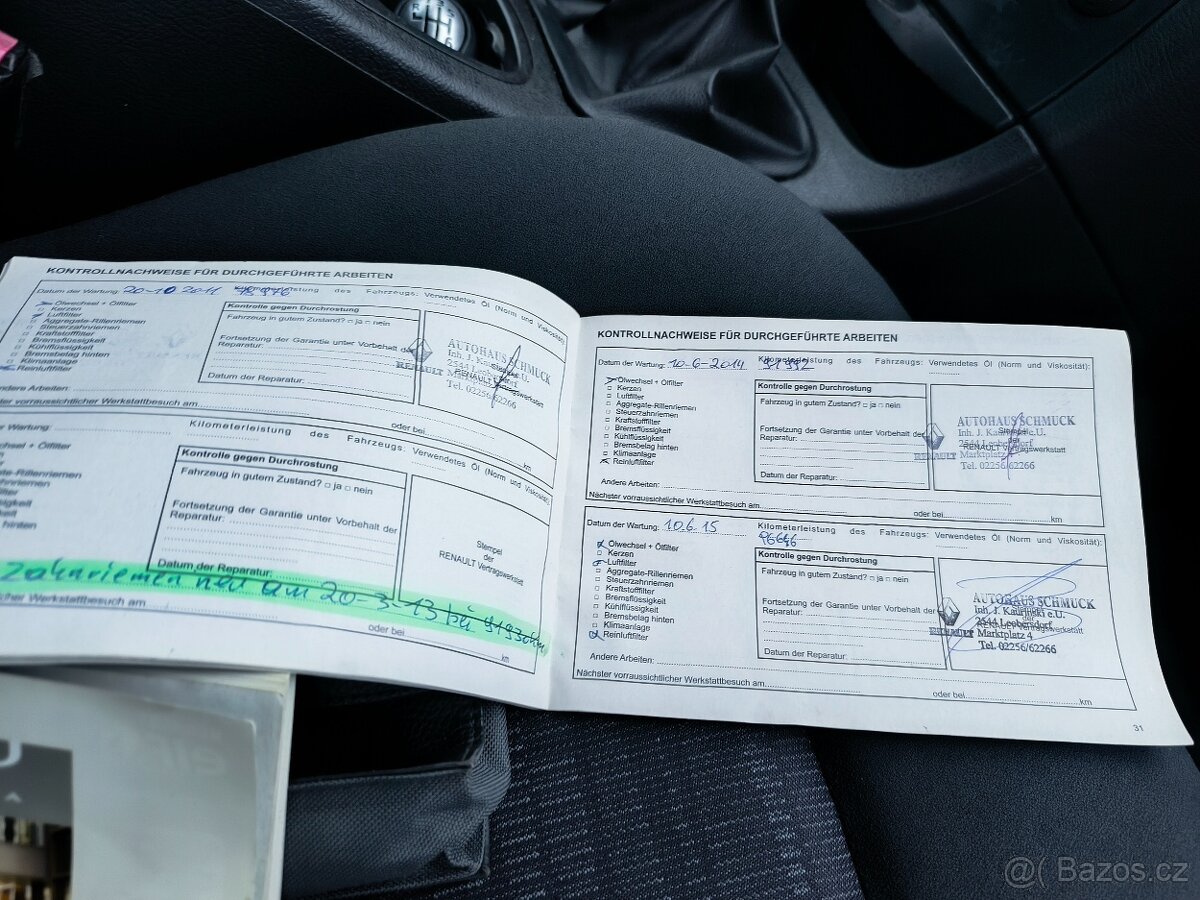 KONTROLLNACHWEISE FÜR DURCHGEFÜHRTE ARBEITEN
Datum der Wartung: 20-10 2011 Kilometerleistung des Fahrzeugs: Verwendetes Öl (Norm und Viskosität)
Ölwechsel + Ölfilter
Kerzen
Luftfilter
Aggregate-Rillenriemen
Steuerzahnriemen
Kraftstofffilter
Bremsflüssigkeit
Kühlflüssigkeit
Bremsbelag hinten
Klimaanlage
Reinluftfilter
Kontrolle gegen Durchrostung
Fahrzeug in gutem Zustand? □ ja □ nein
Fortsetzung der Garantie unter Vorbehalt der
Reparatur:
Datum der Reparatur:
AUTOHAUS SCHMUCK
Inh. J.
2544 Leobersdorf
RENAULT
Tel. 02256/62266
Andere Arbeiten:
vorraussichtlicher Werkstattbesuch am
oder bei
km
Wartung:
Kilometerleistung des Fahrzeugs: Verwendetes Öl (Norm und Viskosität)
wechsel + Ölfilter
hinten
Kontrolle gegen Durchrostung
Fahrzeug in gutem Zustand? □ ja □ nein
Fortsetzung der Garantie unter Vorbehalt der
Reparatur:
Datum der Reparatur:
Stempel
der
RENAULT Vertragswerkstatt
neu am 20-3-13 bei
licher Werkstattbesuch am
oder bei
km
KONTROLLNACHWEISE FÜR DURCHGEFÜHRTE ARBEITEN
Datum der Wartung: 10-6-2014 Kilometerleistung des Fahrzeugs: Verwendetes Öl (Norm und Viskosität):
Ölwechsel + Ölfilter
Kerzen
Luftfilter
Aggregate-Rillenriemen
Steuerzahnriemen
Kraftstofffilter
Bremsflüssigkeit
Kühlflüssigkeit
Bremsbelag hinten
Klimaanlage
Reinluftfilter
Kontrolle gegen Durchrostung
Fahrzeug in gutem Zustand? □ ja □ nein
Fortsetzung der Garantie unter Vorbehalt der
Reparatur:
Datum der Reparatur:
AUTOHAUS SCHMUCK
Inh. J. Kaurinski e.U.
2544 Leobersdorf
RENAULT Marktplatz 4
Tel. 02256/62266
Andere Arbeiten:
Nächster vorraussichtlicher Werkstattbesuch am
oder bei
km
Datum der Wartung: 10.6.15 Kilometerleistung des Fahrzeugs: Verwendetes Öl (Norm und Viskosität):
96646
Ölwechsel + Ölfilter
Kerzen
Luftfilter
Aggregate-Rillenriemen
Steuerzahnriemen
Kraftstofffilter
Bremsflüssigkeit
Kühlflüssigkeit
Bremsbelag hinten
Klimaanlage
Reinluftfilter
Kontrolle gegen Durchrostung
Fahrzeug in gutem Zustand? □ ja □ nein
Fortsetzung der Garantie unter Vorbehalt der
Reparatur:
Datum der Reparatur:
AUTOHAUS SCHMUCK
Inh. J. Kaurinski e.U.
2544 Leobersdorf
RENAULT Marktplatz 4
Tel. 02256/62266
Andere Arbeiten:
Nächster vorraussichtlicher Werkstattbesuch am
oder bei
km
31
Bazos.cz